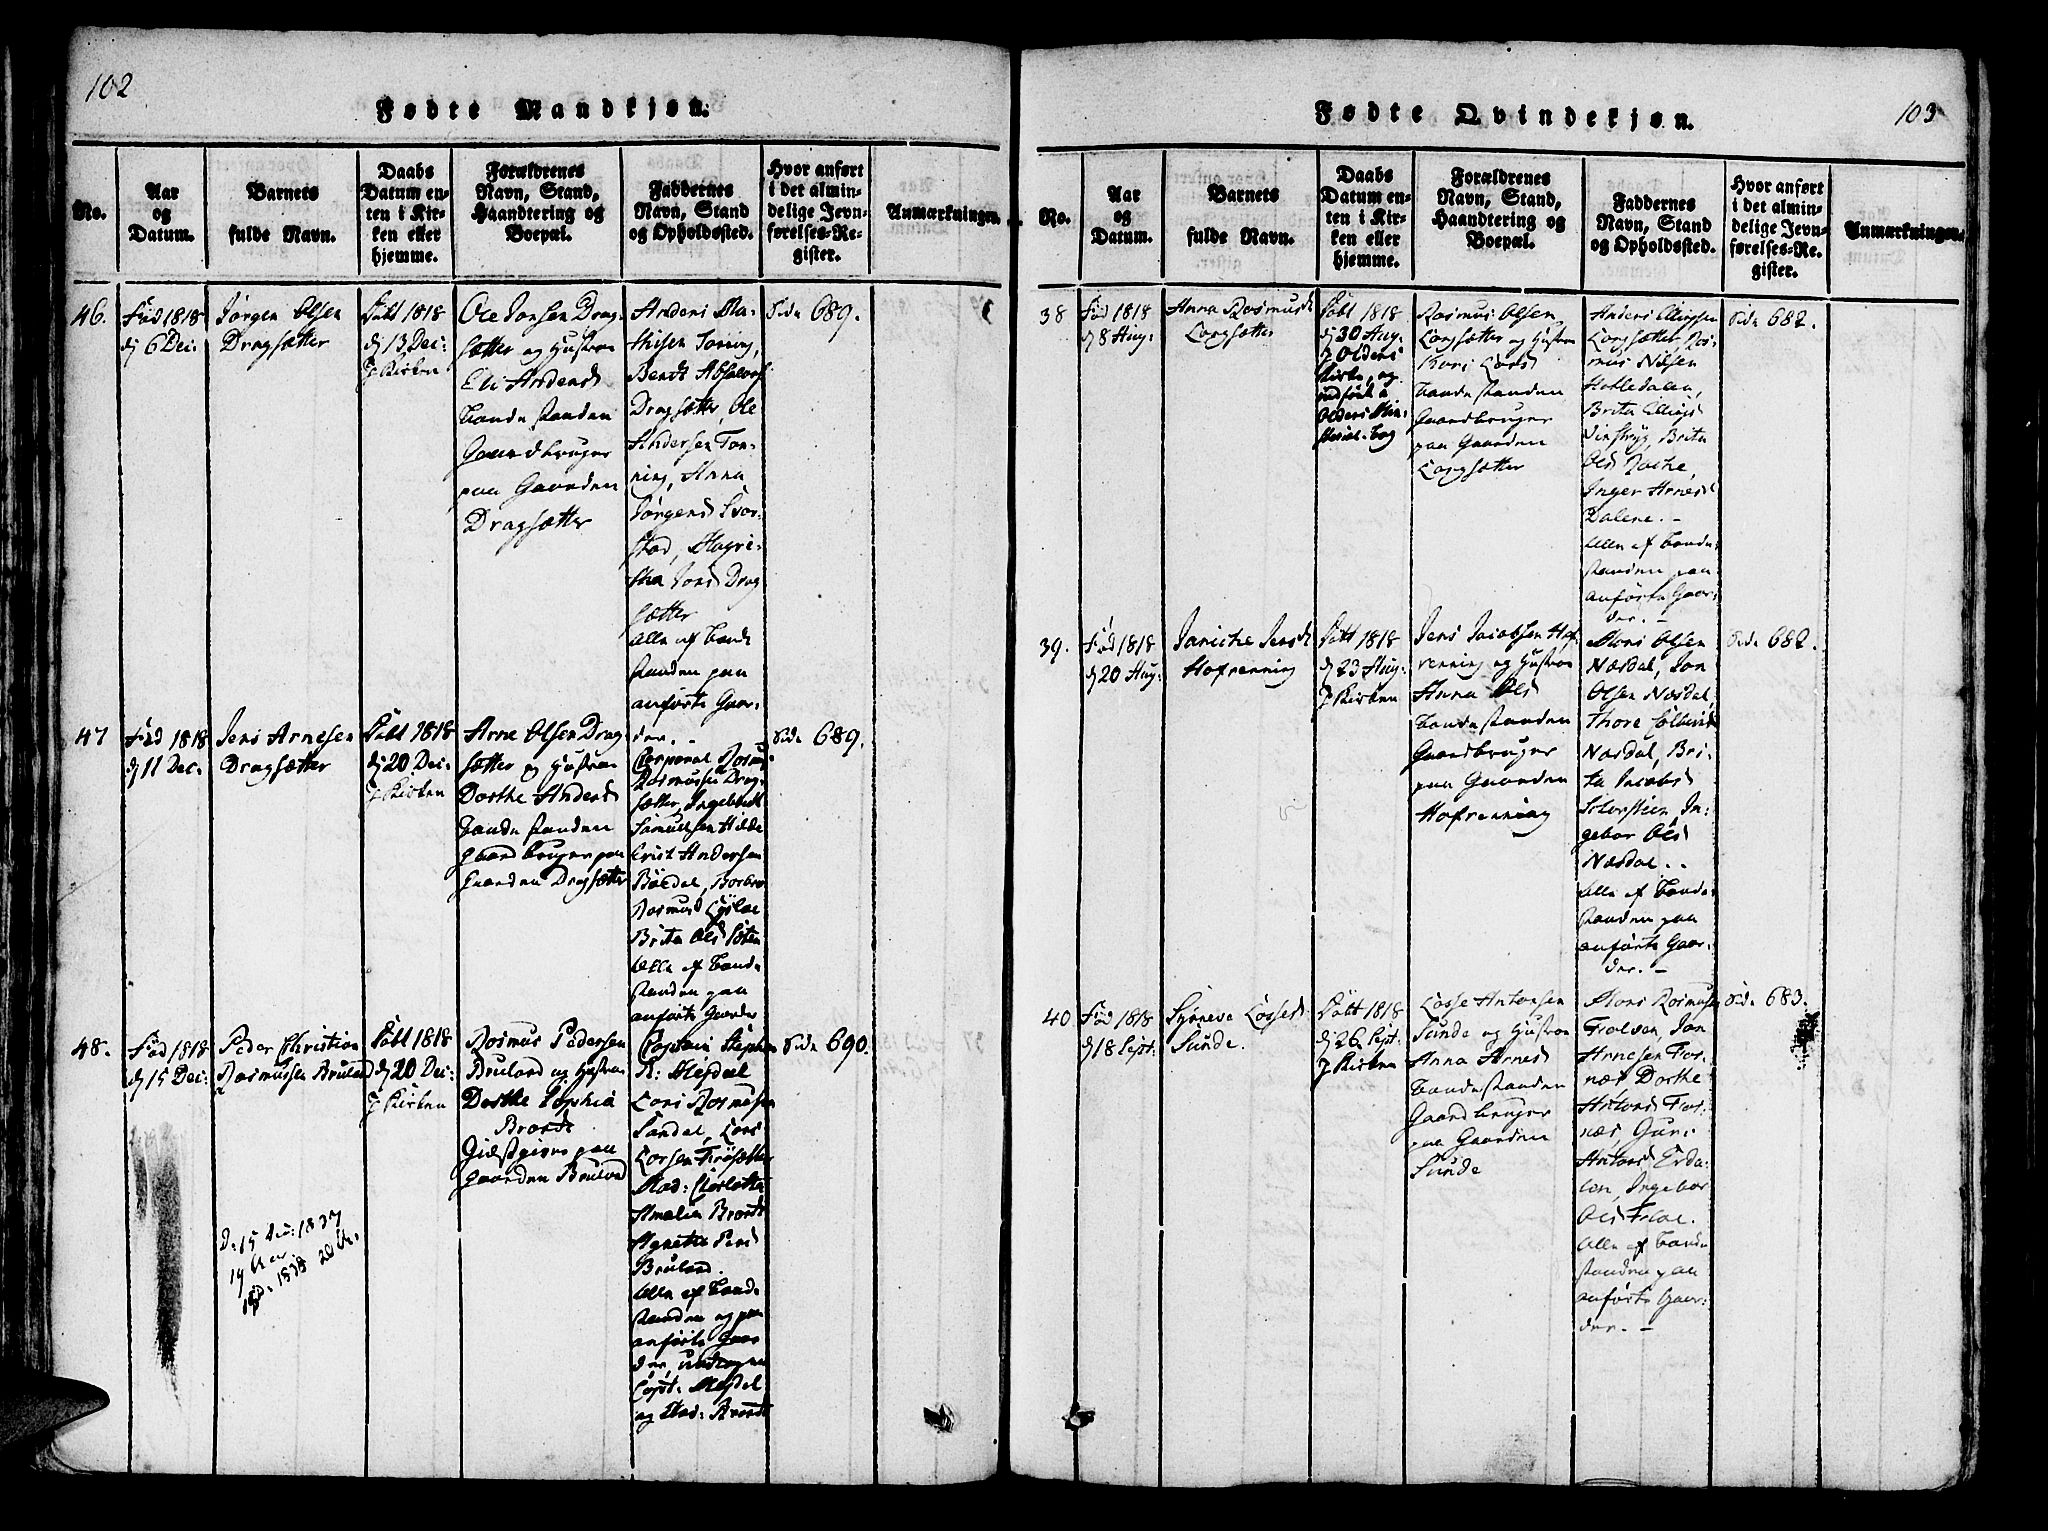 102
Fødte Mandkjøn.
No.
Aar
og
Datum.
Barnets
fulde Navn.
Daabs
Datum en-
ten i Kir-
ken eller
hjemme.
Forældrenes
Navn, Stand,
Haandtering og
Boepæl.
Faddernes
Navn, Stand
og Opholdssted.
Hvor anført
i det almin-
delige Jevn-
førelses-Re-
gister.
Anmærkninger.
46.
Fød 1818
d 6 Dec:
Jørgen Olsen
Dragsætter
Døbt 1818
d 13 Dec:
J Kirken
Ole Jonsen Drag-
sætter og Hustrue
Eli Anders
Bondestanden
Gaardbruger
paa Gaarden
Dragsætter
Anders Ma-
thisen
Bendt
Dragsætter, Ole
Andersen Ton-
ning, Anna
Jørgens
Jons Drag-
sætter
Alle af Bonde
standen paa
anførte Gaar-
der.-
Side 689.
47
Fød 1818
d 11 Dec.
Jens Arnesen
Dragsætter
Døbt 1818
d 20 Dec:
J Kirken
Arne Olsen Drag-
sætter og Hustrue
Dorthe Anders
Bondestanden
Gaardbruger paa
Gaarden Dragsætter
Corporal Rasmus
Rasmussen Drag-
sætter, Ingebrigt
Samuelsen Hilde
Andersen
Rasmus
Brita Ols
Alle af Bonde
standen paa
anførte Gaarder
Side 689.
48.
Fød 1818
d 15 Dec:
Peder Christian
Rasmussen Bruland
Døbt 1818
d 20 Dec:
J Kirken
Rasmus Pedersen
Bruland og Hustrue
Dorthe Sophia
Brandt
Giestgiver paa
Gaarden Bruland
Captain Stephen
R: Mejdel
Lars Rasmusen
Sandal, Lars
Larsen
Mad: Charlotta
Amalia Brandt
Agnethe Peds
Bruland.
Alle af Bonde
standen og paa
anførte Gaar
der, undtagen
Capt: Mejdel
og Mad: Brandt
Side 690.
D: 15 Dec: 1837
19 Aar
1838 20 A.
103
Fødte Qvindekjøn.
No.
Aar
og
Datum.
Barnets
fulde Navn.
Daabs
Datum en-
ten i Kir-
ken eller
hjemme.
Forældrenes
Navn, Stand,
Haandtering og
Boepæl.
Faddernes
Navn, Stand
og Opholdssted.
Hvor anført
i det almin-
delige Jevn-
førelses-Re-
gister.
Anmærkninger.
38
Fød 1818
d 8 Aug:
Anna Rasmusd
Langsætter
Døbt 1818
d 30 Aug:
J Oldens
Kirke, og
indført i
Oldens Mini-
sterial-bog
Rasmus Olsen
Langsætter og Hustrue
Kari Lars
Bondestanden
Gaardbruger
paa Gaarden
Langsætter
Anders Ellingsen
Langsætter, Ras-
mus Nilsen
Brita Ellings
Brita
Ols
Inger Arnes
Dalene.-
Alle af Bonde-
standen paa
anførte Gaar-
der.-
Side 682.
39.
Fød 1818
d 20 Aug:
Janiche Jensd
Hafrenning
Døbt 1818
d 23 Aug:
J Kirken
Jens Jacobsen Haf-
renning og Hustrue
Anna Ols
Bondestanden
Gaardbruger
paa Gaarden
Hafrenning
Mons Olsen
Næsdal, Jon
Olsen Næsdal,
Thore
Næsdal, Bri-
ta Jacobs
In-
gebor Ols
Næsdal..
Alle af Bonde-
standen paa
anførte Gaar-
der.-
Side 682.
40
Fød 1818
d 18 Sept:
Synneve Lassesd
Sunde.
Døbt 1818
d 26 Sept:
J Kirken
Lasse Antonsen
Sunde og Hustrue
Anna Arnes
Bondestanden
Gaardbruger
paa Gaarden
Sunde
Mons Rasmusen
Jon
Arnesen For-
næs, Dorthe
Antons For-
næs, Guri
Antons Erda-
len, Ingebor
Ols
Alle af Bonde
standen paa
anførte Gaar-
der.-
Side 683.